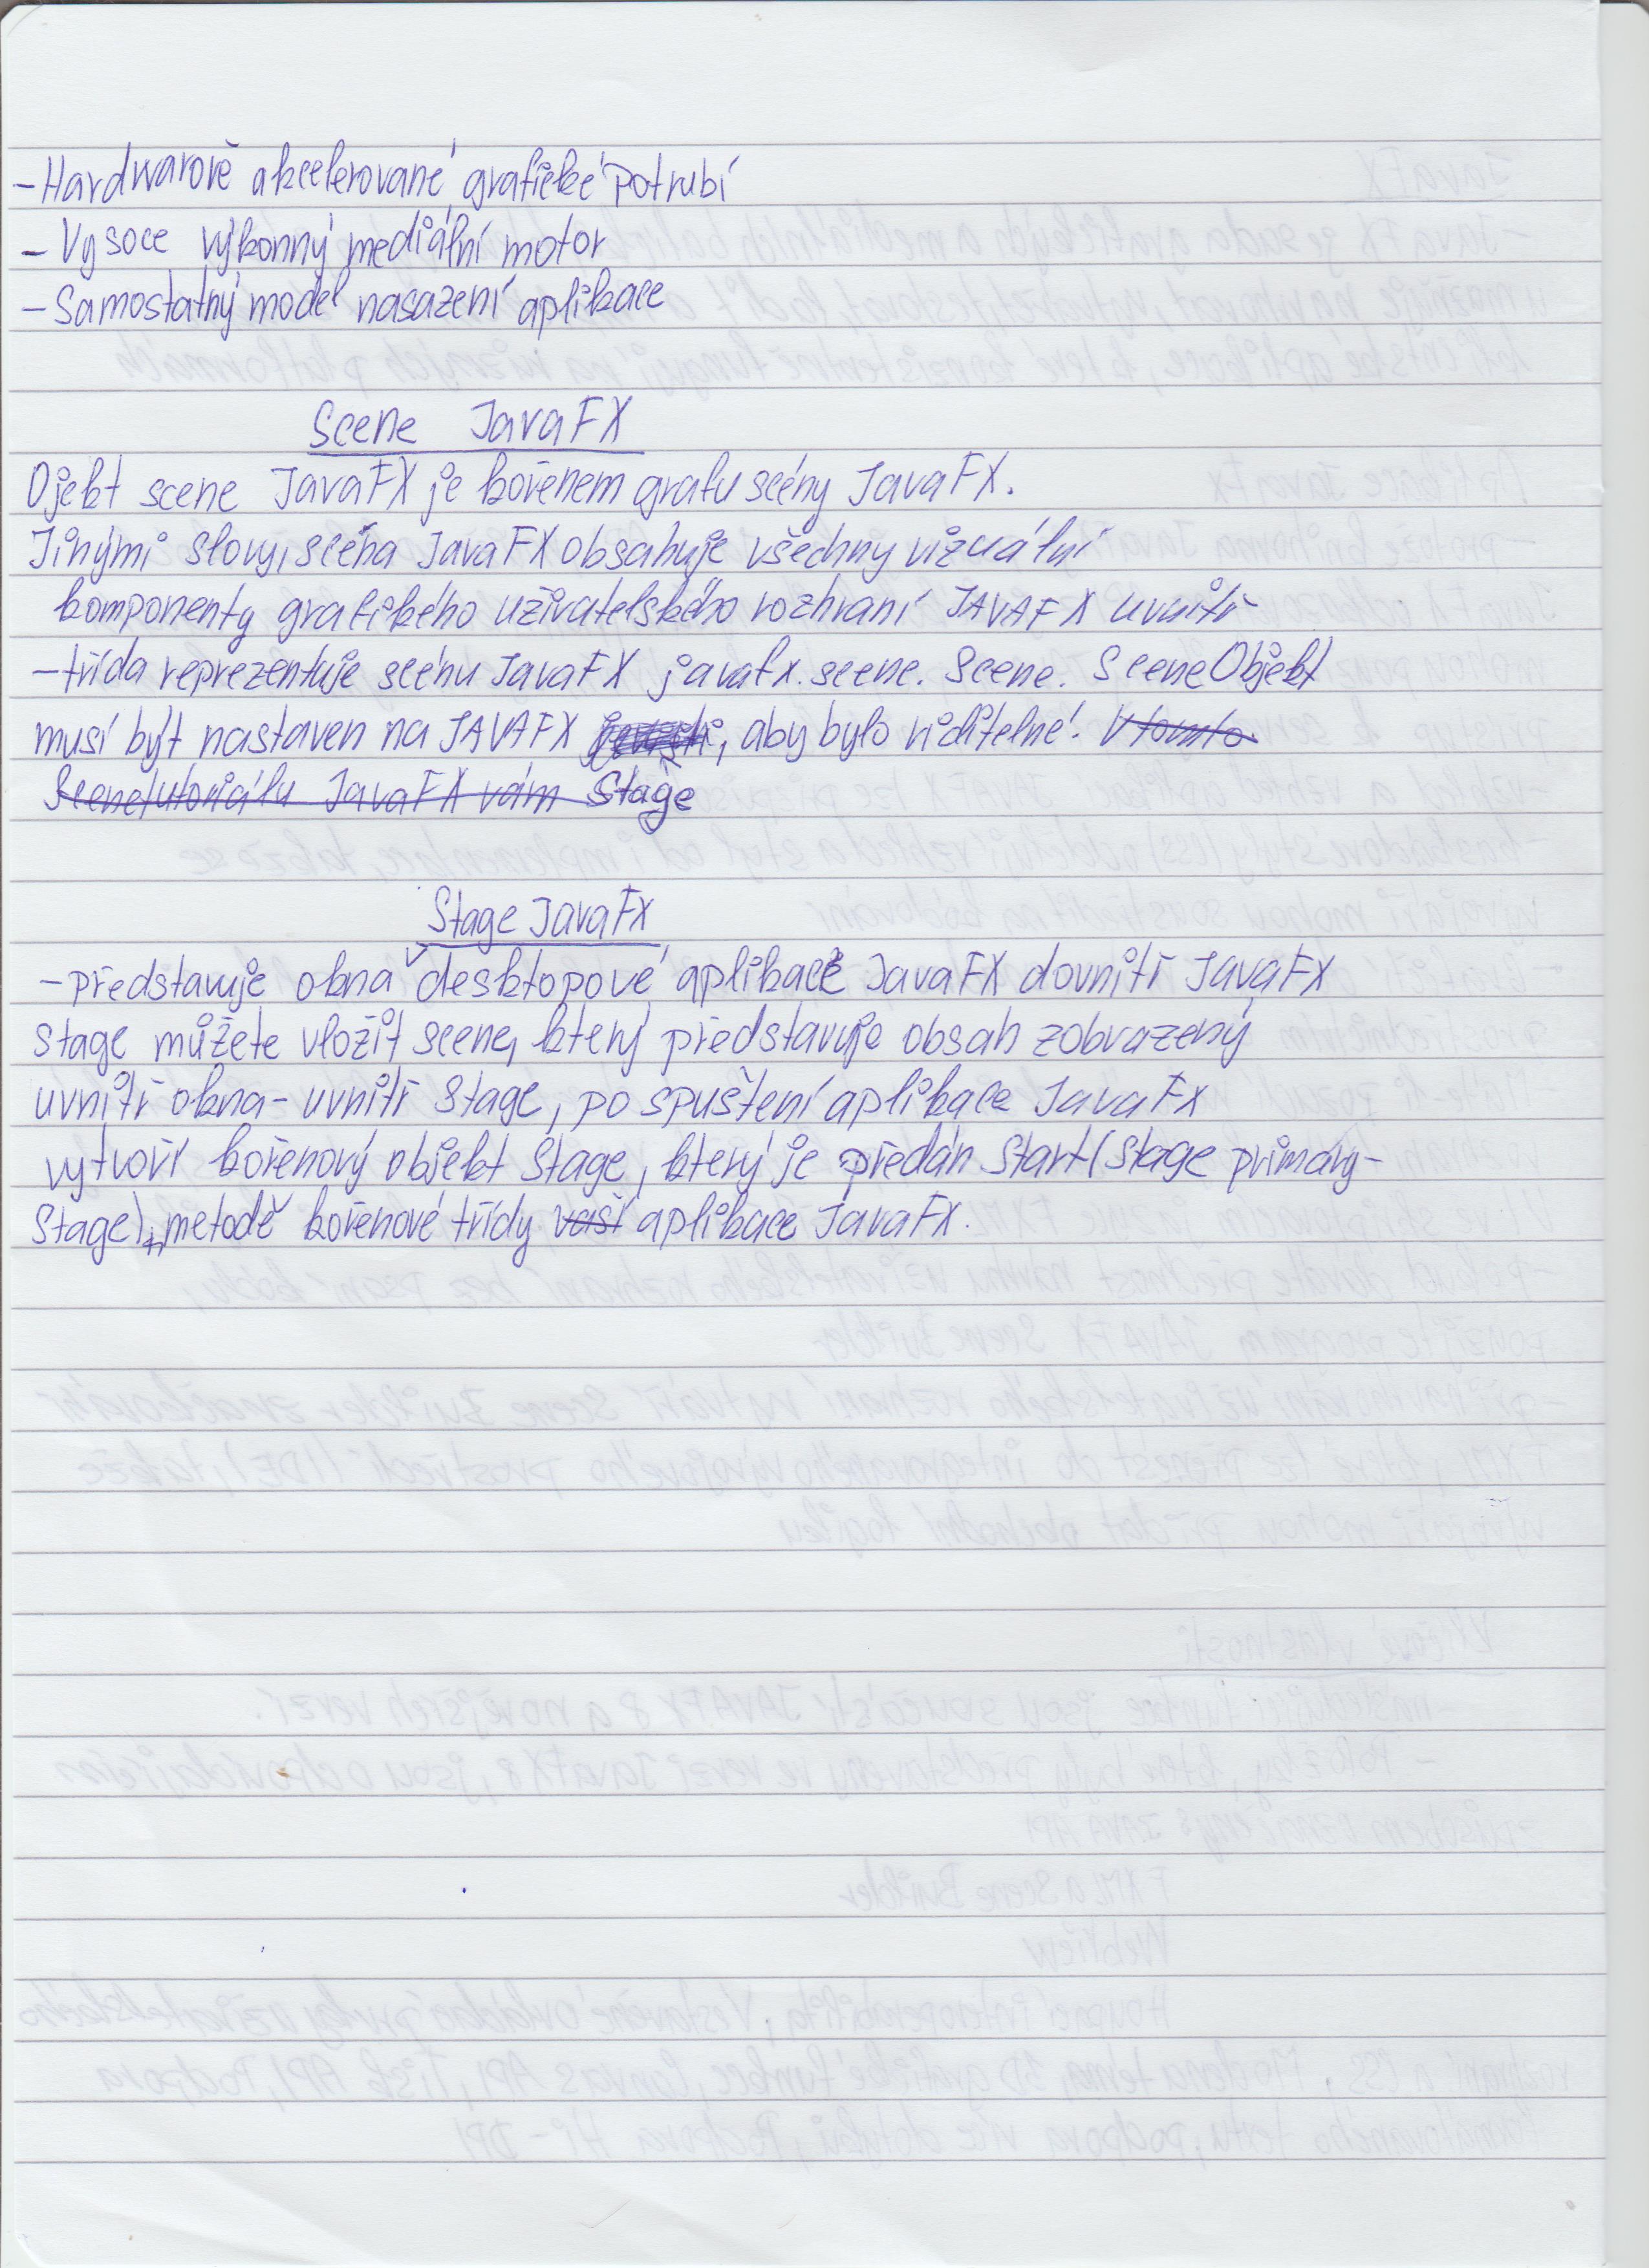 -Hardwarově akcelerované grafické potrubí
- Vysoce výkonný mediální motor
- Samostatný model nasazení aplikace
Scene JavaFX
Ojekt scene JavaFX je kořenem grafu scény JavaFX.
Jinými slovy, scéna JavaFX obsahuje všechny vizuální
komponenty grafikého uživatelského rozhraní JAVAFX uvnitř
-třída reprezentuje scénu JavaFX javafx.scene.Scene. SceneObjekt
musí být nastaven na JAVAFX jevišti, aby bylo viditelné. V tomto
Scenetutoriálu JavaFX vám Stage
Stage JavaFX
-představuje okna v desktopové aplikace JavaFX dovnitř JavaFX
stage můžete vložit scene, který představuje obsah zobrazený
uvnitř okna- uvnitř Stage, po spuštění aplikace JavaFx
vytvoří kořenový objekt Stage, který je předán Start(Stage primary-
Stage), metodě kořenové třídy vaší aplikace JavaFX.